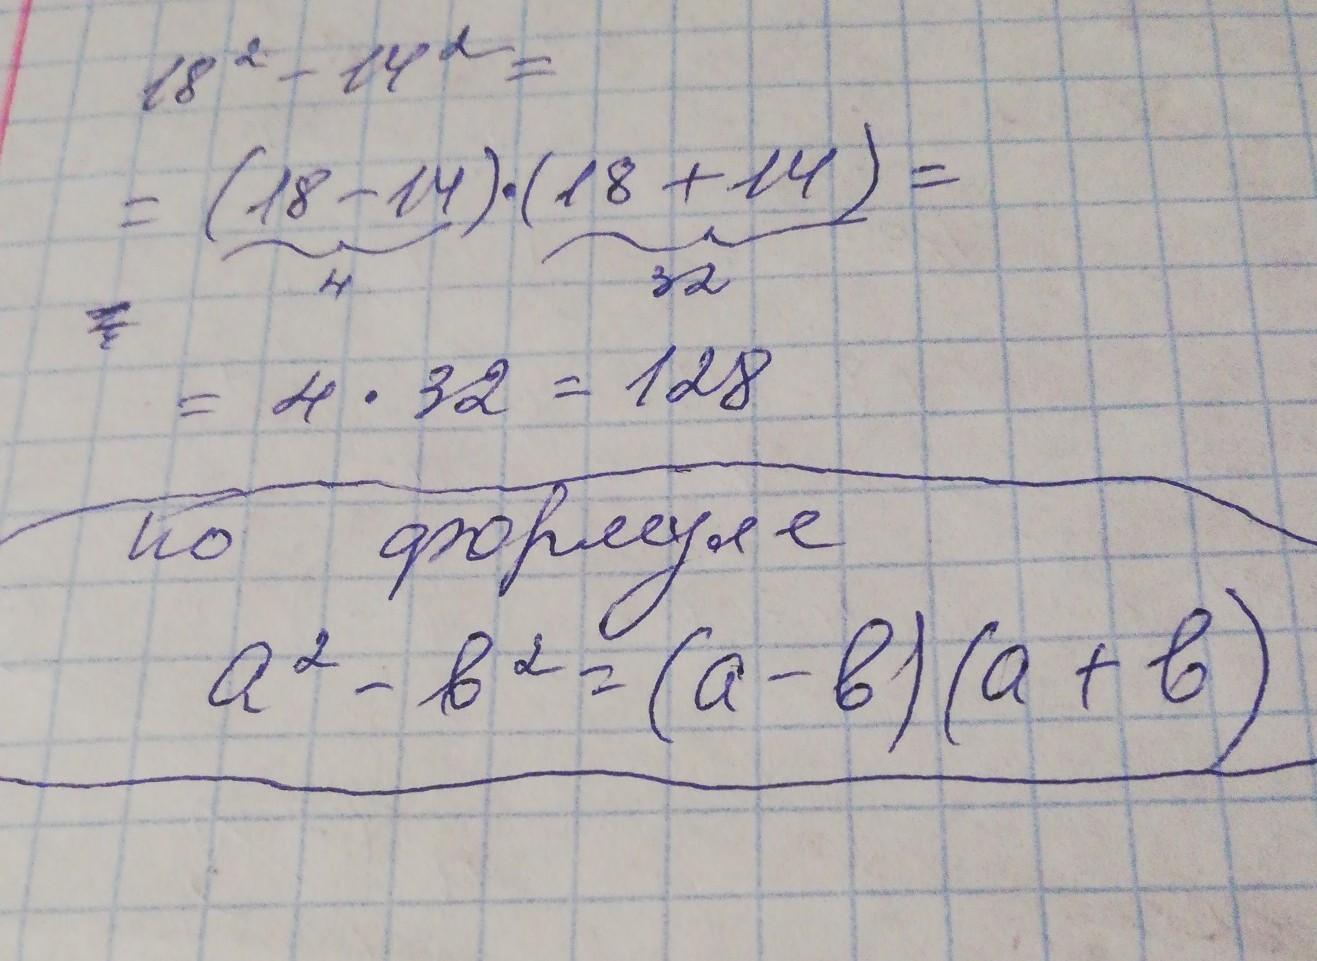 18² - 14² =
= (18 - 14)·(18 + 14) =
4 32
= 4 · 32 = 128
по формуле
a² - в² = (a - в)(a + в)